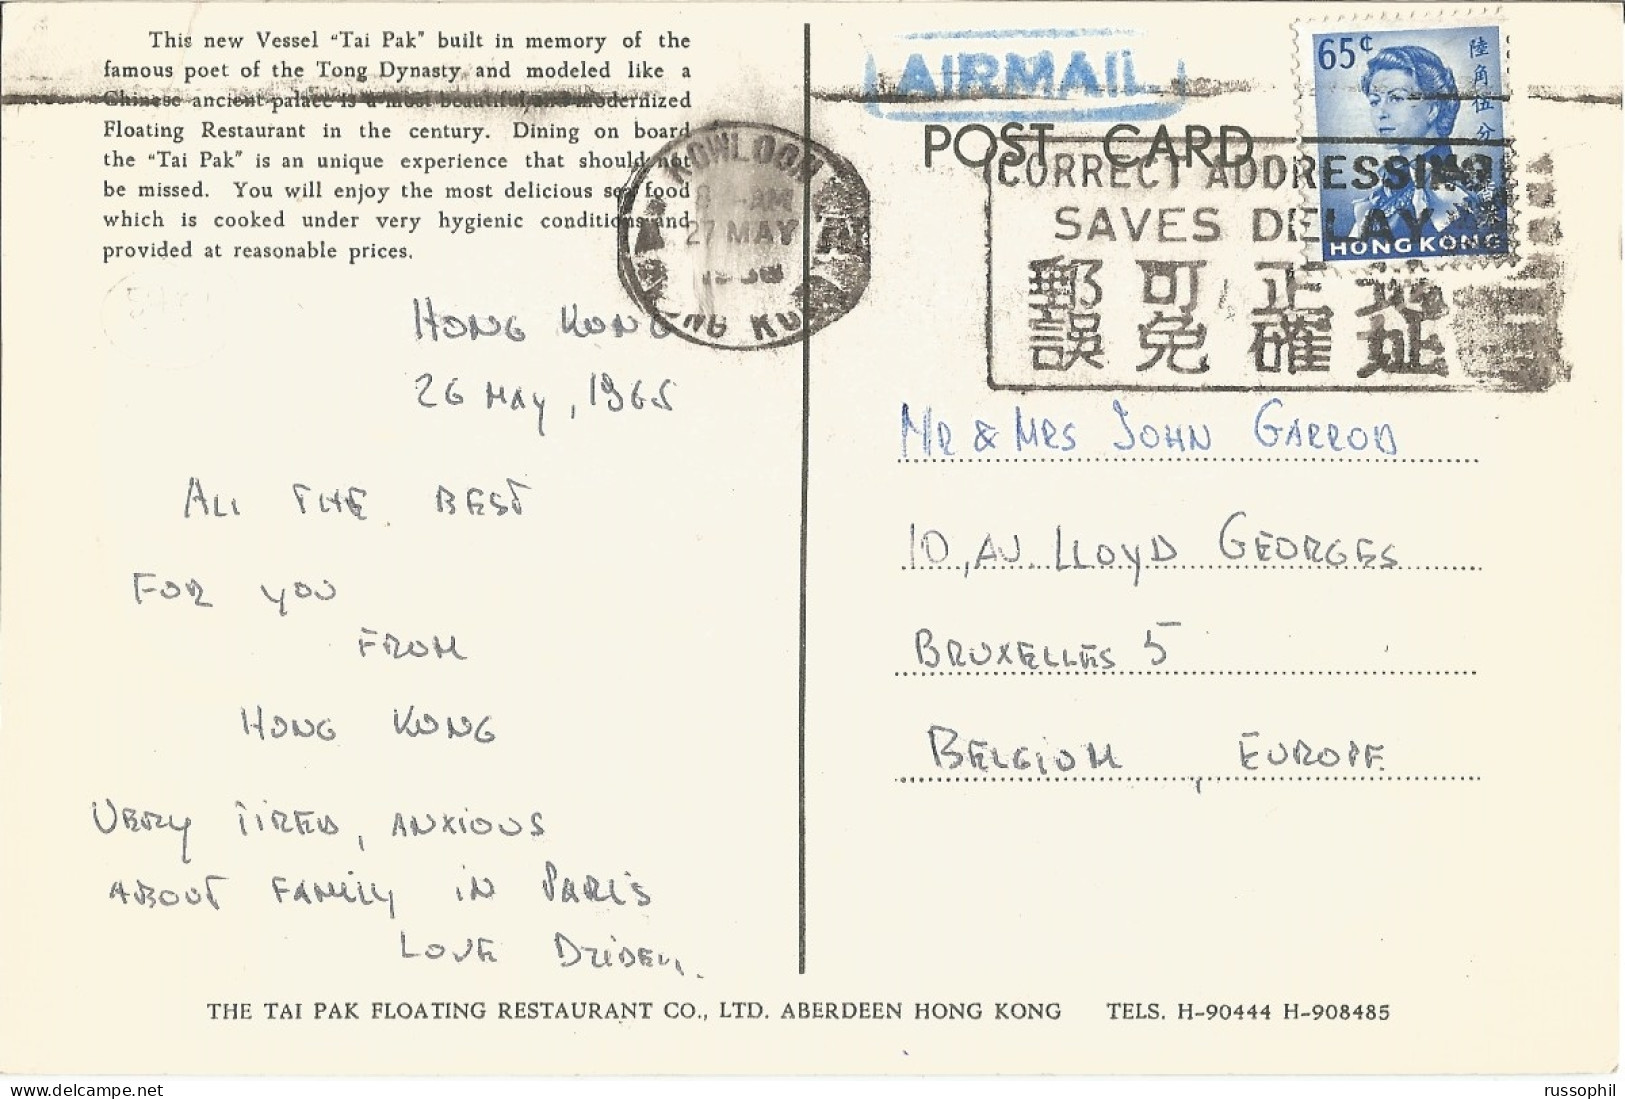 This new Vessel "Tai Pak" built in memory of the
famous poet of the Tong Dynasty, and modeled like a
Chinese ancient palace is a most beautiful and modernized
Floating Restaurant in the century. Dining on board
the "Tai Pak" is an unique experience that should not
be missed. You will enjoy the most delicious sea food
which is cooked under very hygienic conditions and
provided at reasonable prices.
HONG KONG
26 MAY, 1965
ALL THE BEST
FOR YOU
FROM
HONG KONG
VERY TIRED, ANXIOUS
ABOUT FAMILY IN PARIS
LOVE
AIRMAIL
POST CARD
65¢
陸角伍分
HONG KONG
KOWLOON
AM
27 MAY
HONG KONG
CORRECT ADDRESSING
SAVES DELAY
郵可正地
誤免確址
MR & MRS JOHN GARROD
10, AV. LLOYD GEORGES
BRUXELLES 5
BELGIUM, EUROPE
THE TAI PAK FLOATING RESTAURANT CO., LTD. ABERDEEN HONG KONG TELS. H-90444 H-908485
russophil